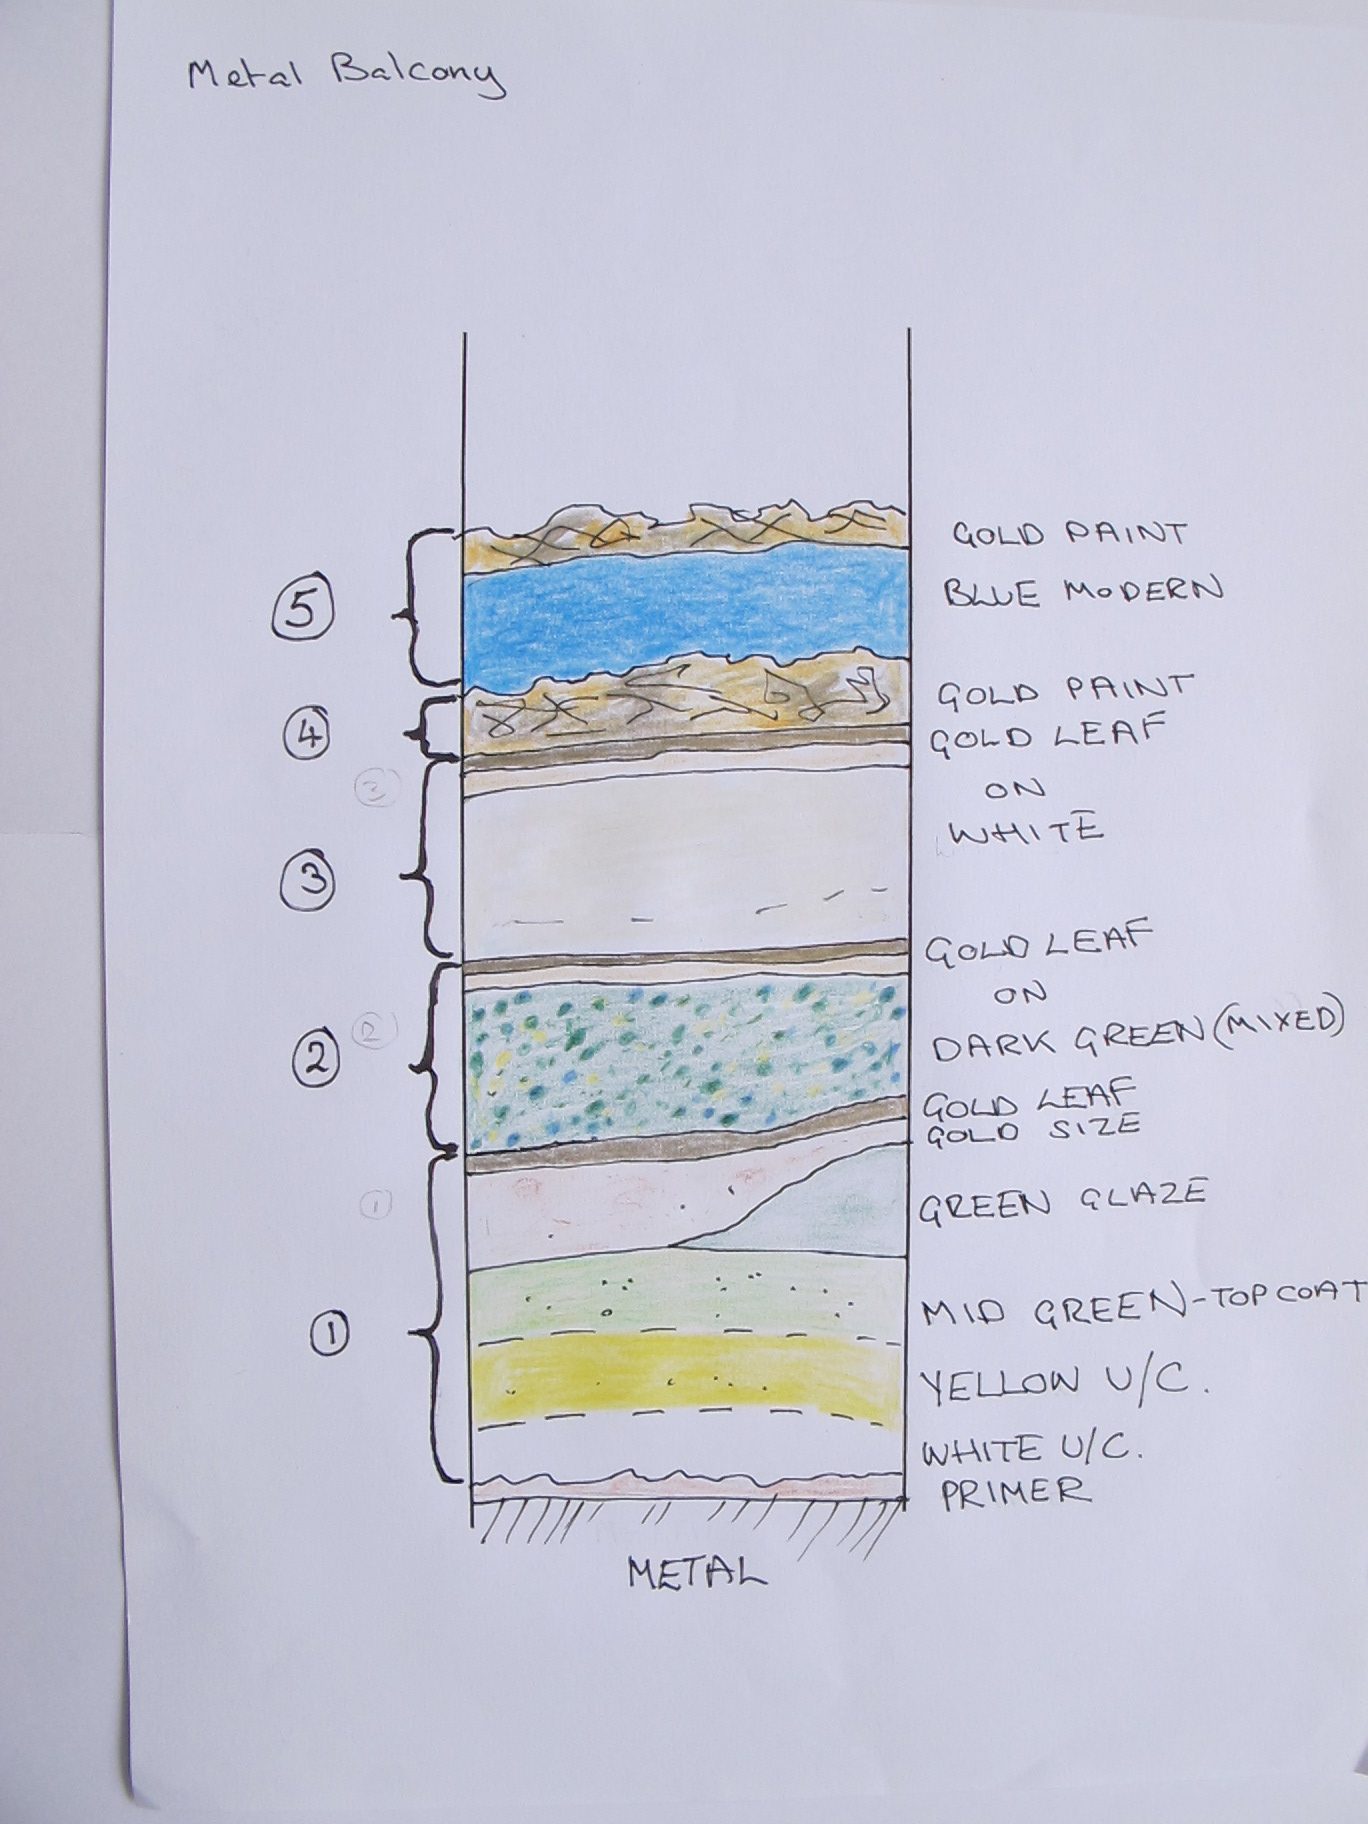 Metal Balcony
GOLD PAINT
5
BLUE MODERN
GOLD PAINT
4
GOLD LEAF
2
ON
WHITE
3
GOLD LEAF
ON
2
2
DARK GREEN (MIXED)
GOLD LEAF
GOLD SIZE
1
GREEN GLAZE
MID GREEN-TOPCOAT
1
YELLOW U/C.
WHITE U/C.
PRIMER
METAL